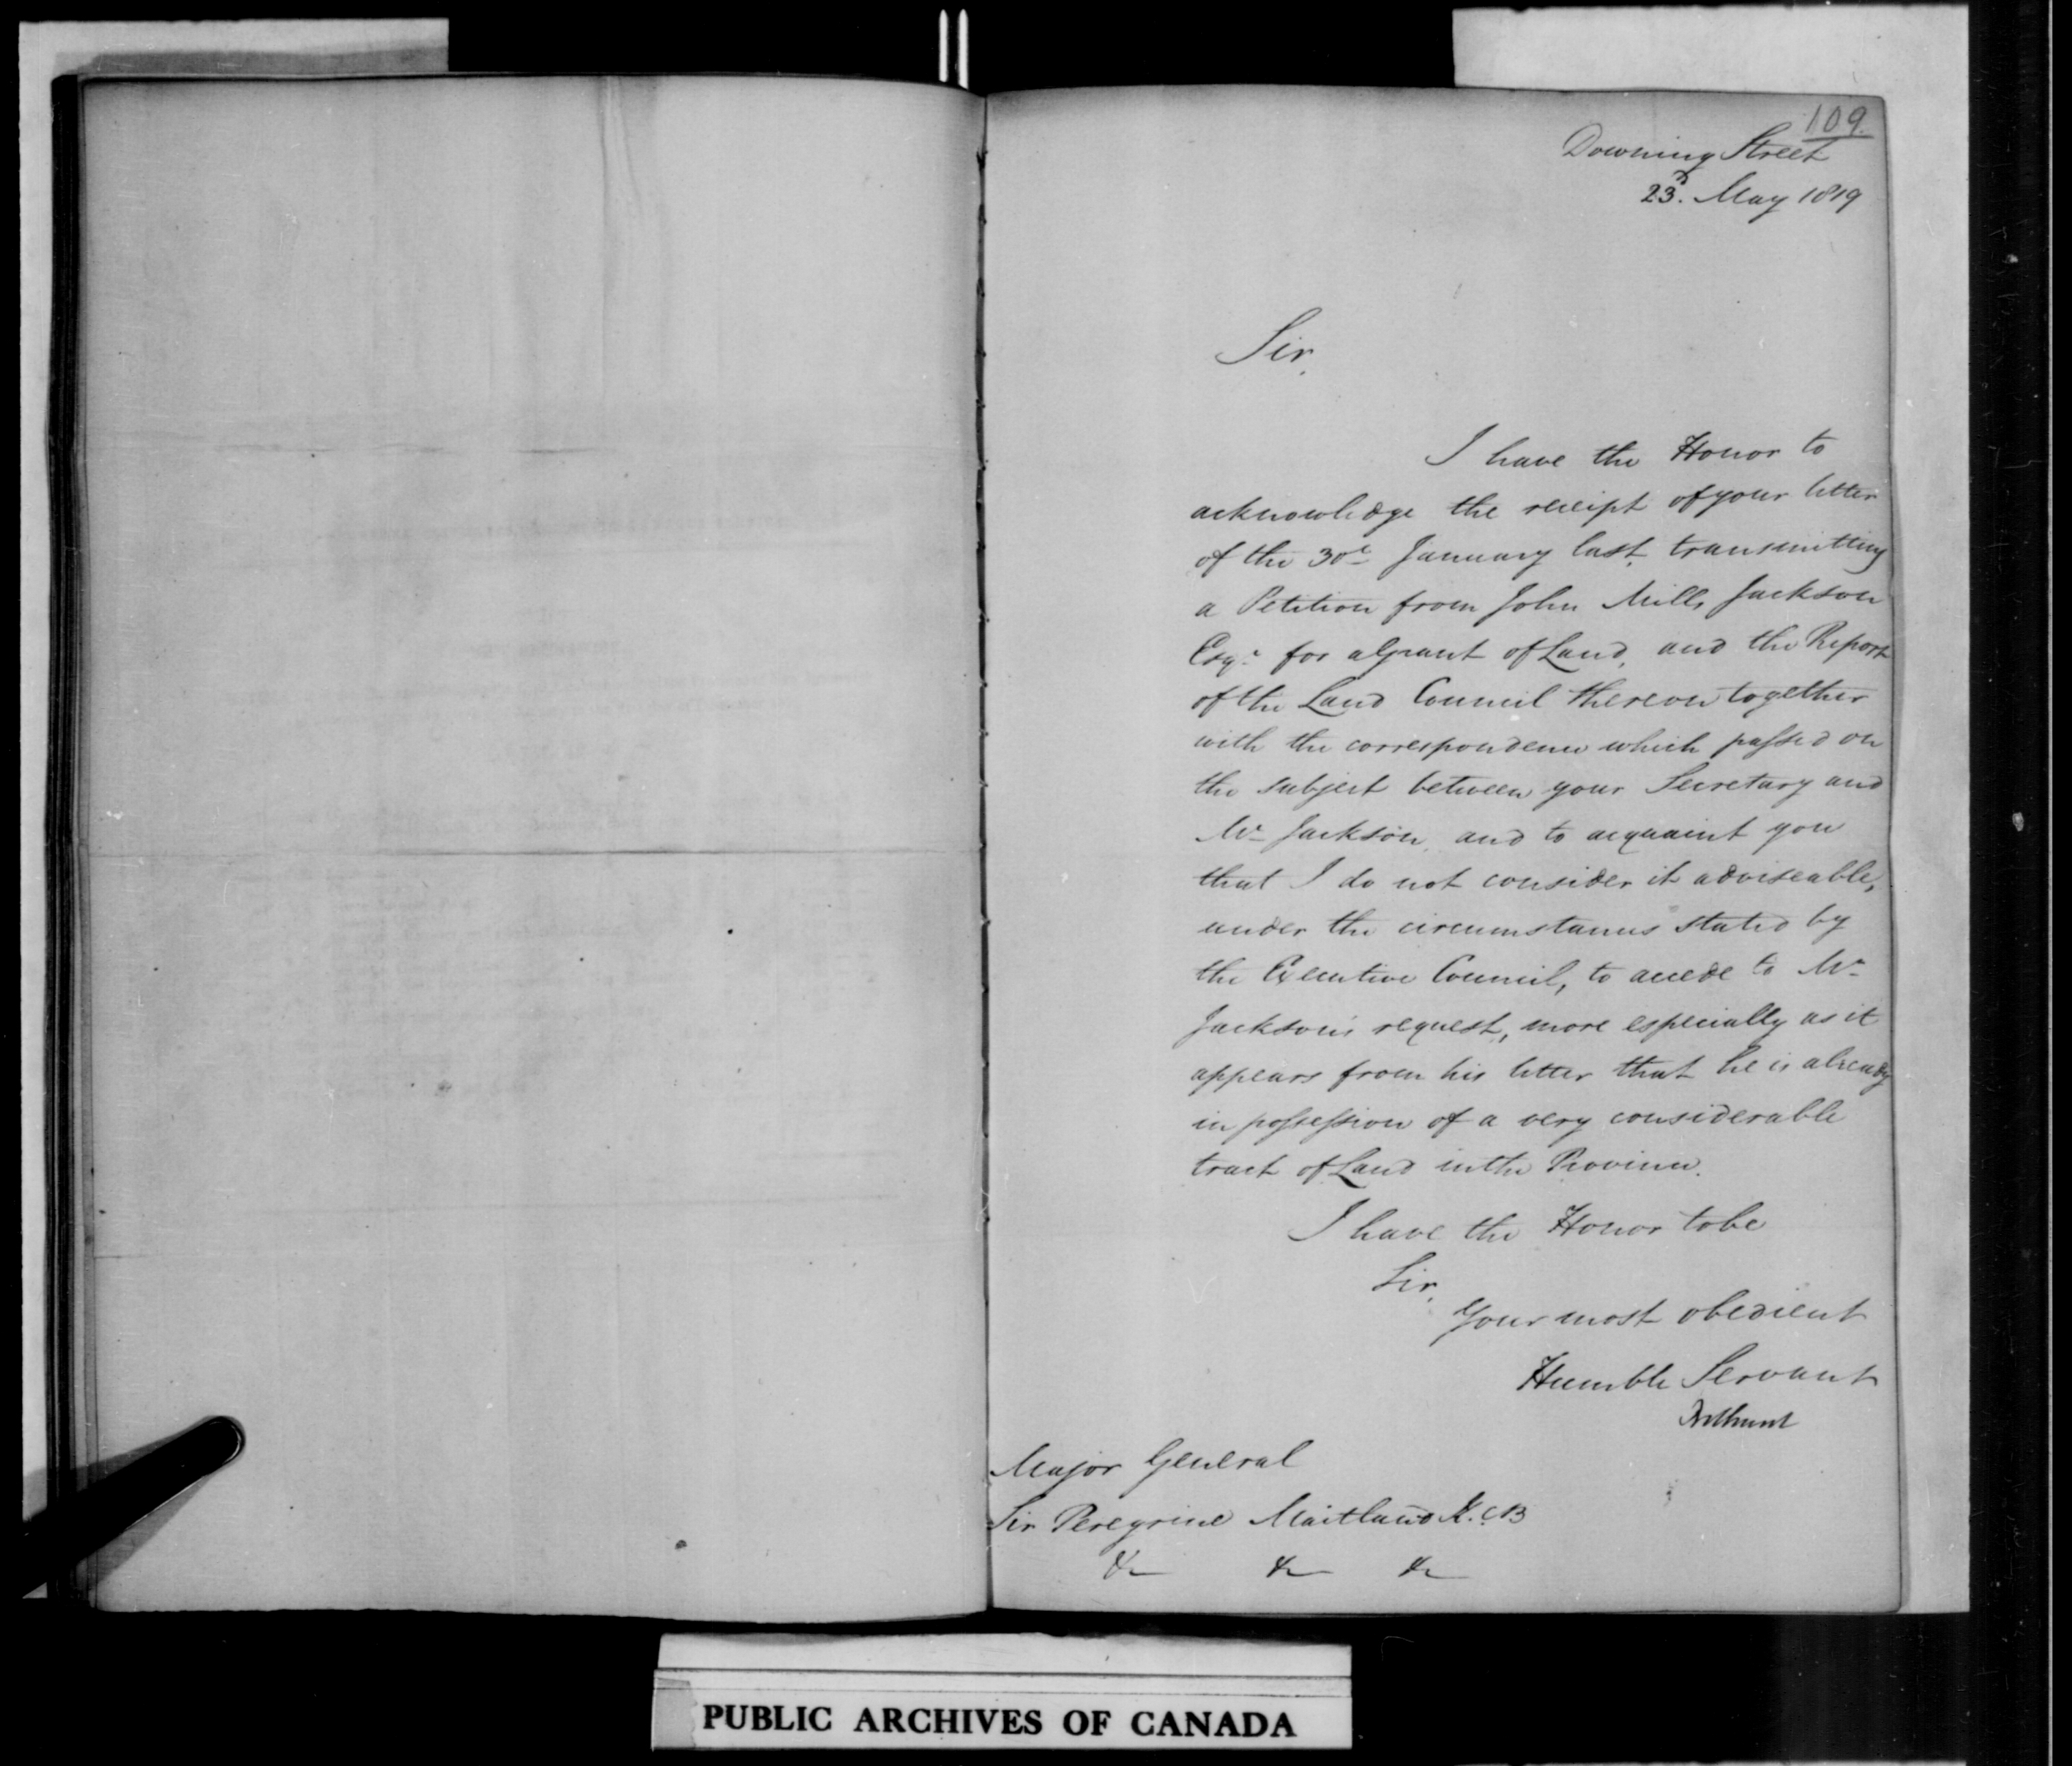 109
Downing Street
23d. May 1819
Sir,
I have the Honor to
acknowledge the receipt of your letter
of the 30th January last, transmitting
a Petition from John Mills Jackson
Esqr. for a Grant of Land, and the Report
of the Land Council thereon together
with the correspondence which passed on
the subject between your Secretary and
Mr Jackson, and to acquaint you
that I do not consider it adviseable,
under the circumstances stated by
the Executive Council, to accede to Mr
Jackson's request, more especially as it
appears from his letter that he is already
in possession of a very considerable
tract of Land in the Province.
I have the Honor to be
Sir,
Your most obedient
Humble Servant
Bathurst
Major General
Sir Peregrine Maitland K.CB
&c &c &c
PUBLIC ARCHIVES OF CANADA